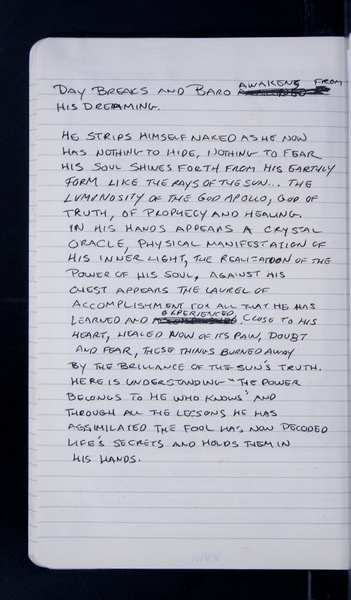 DAY BREAKS AND BARO AWAKENS FROM
HIS DREAMING.
HE STRIPS HIMSELF NAKED AS HE NOW
HAS NOTHING TO HIDE, NOTHING TO FEAR
HIS SOUL SHINES FORTH FROM HIS EARTHLY
FORM LIKE THE RAYS OF THE SUN... THE
LUMUNOSITY OF THE GOD APOLLO, GOD OF
TRUTH, OF PROPHECY AND HEALING.
IN HIS HANDS APPEARS A CRYSTAL
ORACLE, PHYSICAL MANIFESTATION OF
HIS INNER LIGHT, THE REALIZATION OF THE
POWER OF HIS SOUL, AGAINST HIS
CHEST APPEARS THE LAUREL OF
ACCOMPLISHMENT FOR ALL THAT HE HAS
LEARNED AND EXPERIENCED, CLOSE TO HIS
HEART, HEALED NOW OF ITS PAIN, DOUBT
AND FEAR, THESE THINGS BURNED AWAY
BY THE BRILLANCE OF THE SUN'S TRUTH.
HERE IS UNDERSTANDING "THE POWER
BELONGS TO HE WHO KNOWS" AND
THROUGH ALL THE LESSONS HE HAS
ASSIMILATED THE FOOL HAS NOW DECODED
LIFE'S SECRETS AND HOLDS THEM IN
HIS HANDS.